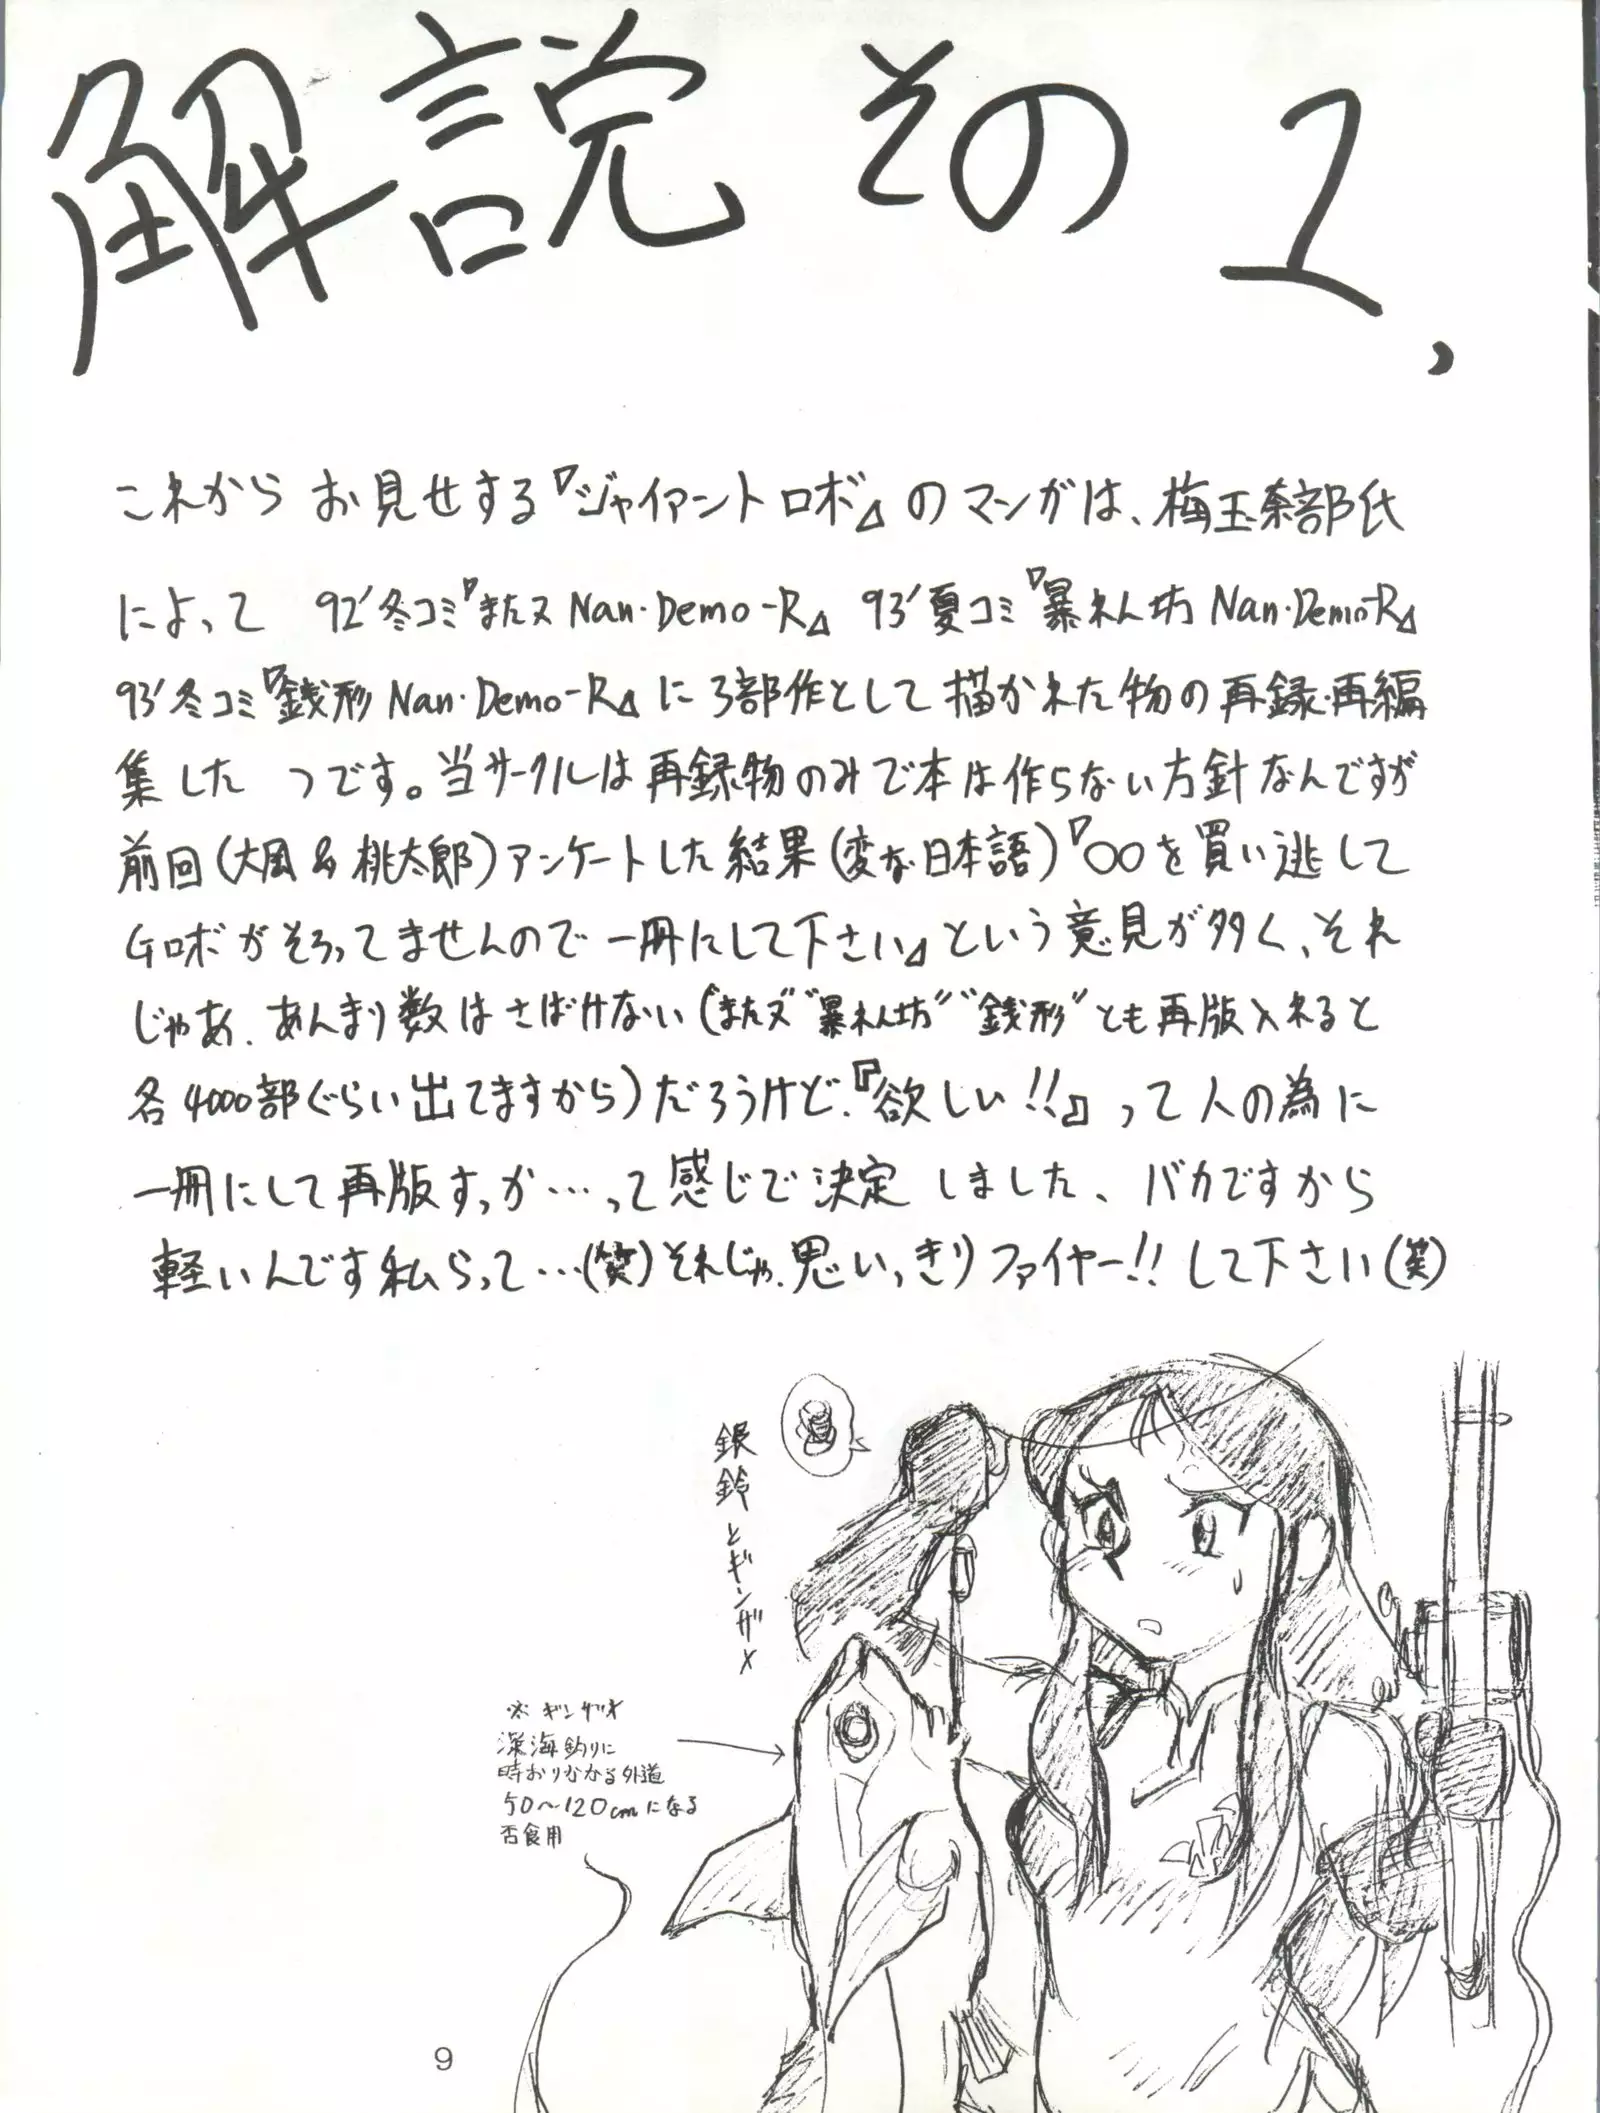 解説 その 1,
これから お見せする『ジャイアントロボ』のマンガは、梅玉奈部氏
によって 92'冬コミ『またヌ Nan・Demo-R』 93'夏コミ『暴れん坊 Nan・Demo-R』
93'冬コミ『銭形 Nan・Demo-R』に3部作として描かれた物の再録・再編
集した つです。当サークルは再録物のみで本は作らない方針なんですが
前回(大風&桃太郎)アンケートした結果(変な日本語)『○○を買い逃して
Gロボがそろってませんので一冊にして下さい』という意見が多く、それ
じゃあ、あんまり数はさばけない("またヌ""暴れん坊""銭形"とも再版入れると
各4000部ぐらい出てますから)だろうけど、『欲しい!!』って人の為に
一冊にして再版すっか…って感じで決定 しました、バカですから
軽いんです私らって…(笑)それじゃ、思いっきりファイヤー!!して下さい(笑)
銀鈴とギンザメ
※ギンザメ
深海釣りに
時おりかかる外道
50〜120cmになる
否食用
9